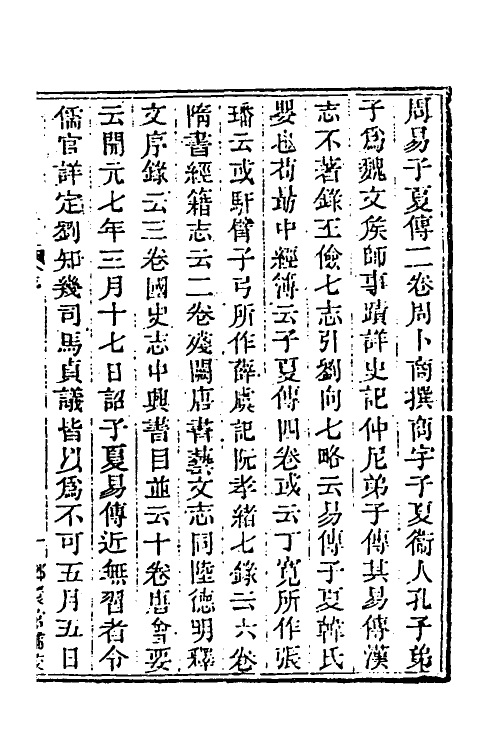 周易子夏傳二卷周卜商撰商字子夏衞人孔子弟
子爲魏文矦師事蹟詳史記仲尼弟子傳其易傳漢
志不著錄王儉七志引劉向七略云易傳子夏韓氏
嬰也荀勗中經簿云子夏傳四卷或云丁寬所作張
璠云或馯臂子弓所作薛虞記阮孝緒七錄云六卷
隋書經籍志云二卷殘闕唐書藝文志同陸德明釋
文序錄云三卷國史志中興書目並云十卷唐會要
云開元七年三月十七日詔子夏易傳近無習者令
儒官詳定劉知幾司馬貞議皆以爲不可五月五日